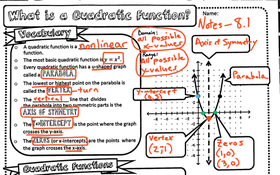 What is a Quadratic Function?
Notes - 8.1
Vocabulary
A quadratic function is a nonlinear
The most basic quadratic function is y = x².
Every quadratic function has a u-shaped graph
called a PARABOLA
The lowest or highest point on the parabola is
called the VERTEX - turn
The vertical line that divides
the parabola into two symmetric parts is the
AXIS OF SYMMETRY
The Y-INTERCEPT is the point where the graph
crosses the y-axis.
The ZEROS (or x-intercepts) are the points where
the graph crosses the x-axis.
Domain:
all possible
x-values
Range:
all possible
y-values
Axis of Symmetry
Parabola
y-intercept
Vertex
Zeros
(1,0)
(3,0)
Quadratic Functions